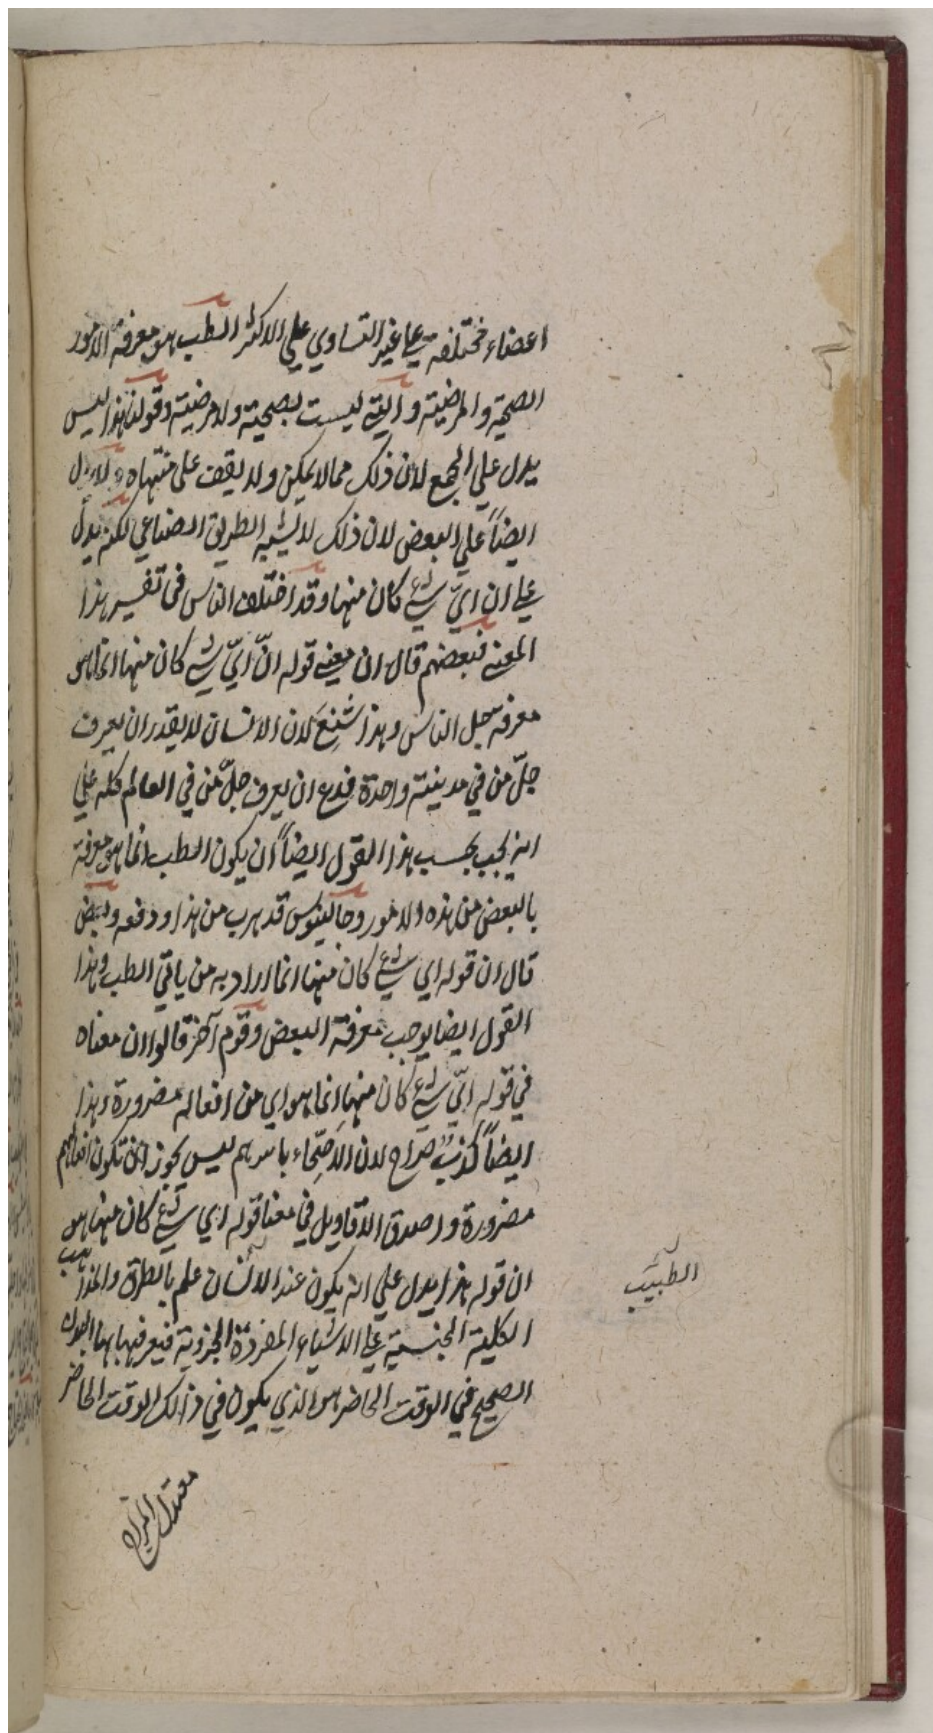 اعضاء مختلفة علي غير التساوي علي الاكثر الطب هو معرفة الامور
الصحية والمرضية والتي ليست بصحية ولا مرضية وقولنا هذا ليس
يدل علي الجمع لان ذلك مما لا يمكن ولا يقف على منتهاه ولا يدل
ايضاً علي البعض لان ذلك لا يشبه الطريق الصناعي لكنه يدل
علي ان ايّ شيء كان منها وقد اختلف الناس في تفسير هذا
المعني فبعضهم قال ان معني قوله انّ ايّ شيء كان منها انما هو
معرفة جل الناس وهذا شَنِعَ لان الانسان لا يقدر ان يعرف
جلّ من في مدينة واحدة فدع ان يعرف جلّ من في العالم كله علي
انه يجب بحسب هذا القول ايضاً ان يكون الطب انما هو معرفة
بالبعض من هذه الامور وجالينوس قد هرب من هذا ودفعه وبعض
قال ان قوله اي شيء كان منها انما اراد به من ياتي الطب وهذا
القول ايضا يوجب معرفة البعض وقوم آخر قالوا ان معناه
في قوله ايّ شيء كان منها انما هو اي من افعاله مضرورة وهذا
ايضاً كذبٌ صراح لان الاصحّاء باسرهم ليس يجوز ان تكون افعالهم
مضرورة واصدق الاقاويل في معنا قوله اي شيء كان منها هو
ان قوله هذا يدل علي انه يكون عند الانسان علم بالطرق والمذاهب
الكلية الجنسية علي الاشياء المفردة الجزوية فيعرفها بها البدن
الصحيح في الوقت الحاضر هو الذي يكون في ذالك الوقت الحاضر
معتدل المزاج
الطبيب